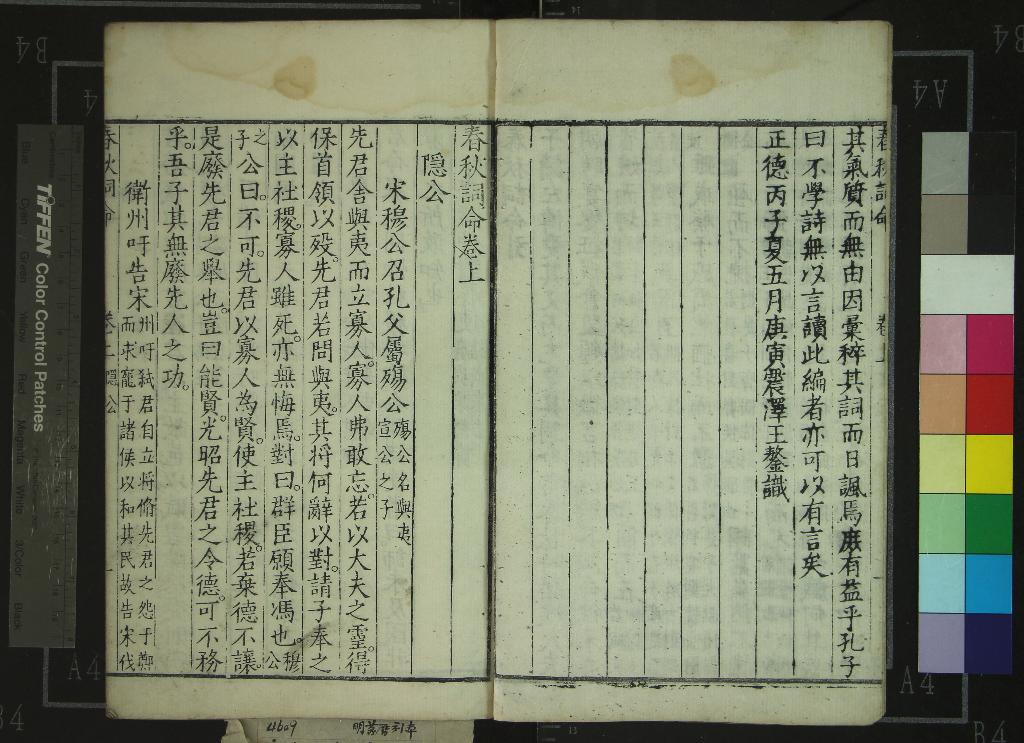 其氣質而無由因彙稡其詞而日諷焉庶有益乎孔子
曰不學詩無以言讀此編者亦可以有言矣
正德丙子夏五月庚寅震澤王鏊識
春秋詞命卷上
隱公
宋穆公召孔父屬殤公
殤公名與夷
宣公之子
先君舍與夷而立寡人。寡人弗敢忘。若以大夫之靈得
保首領以殁。先君若問與夷。其将何辭以對。請子奉之
以主社稷。寡人雖死。亦無悔焉。對曰。群臣願奉馮也。穆公
之子
公曰。不可。先君以寡人為賢。使主社稷。若棄德不讓
是廢先君之舉也。豈曰能賢。光昭先君之令德。可不務
乎。吾子其無廢先人之功。
衛州吁告宋
州吁弑君自立将脩先君之怨于鄭
而求寵于諸侯以和其民故告宋伐
春秋詞命
隱公
TIFFEN Color Control Patches
Blue
Cyan
Green
Yellow
Red
Magenta
White
3/Color
Black
B4
A4
A4
B4
4609